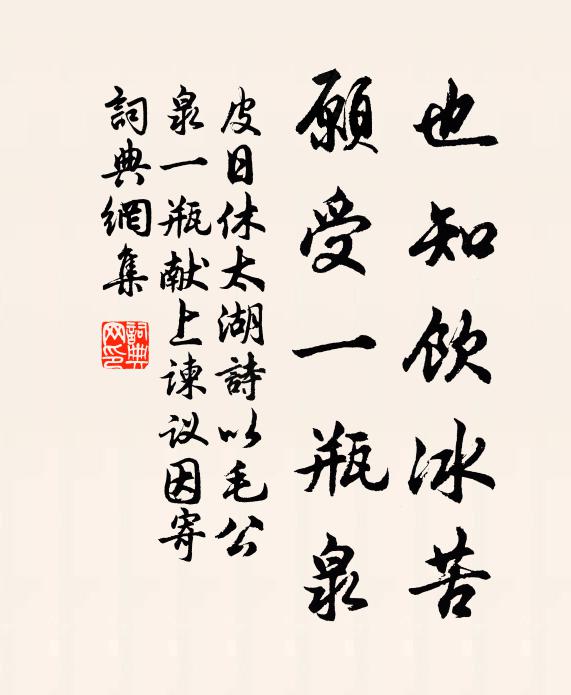 也知飲冰苦
願受一瓶泉
皮日休太湖詩以毛公
泉一瓶献上諫议因寄
詞典網集
詞典網印